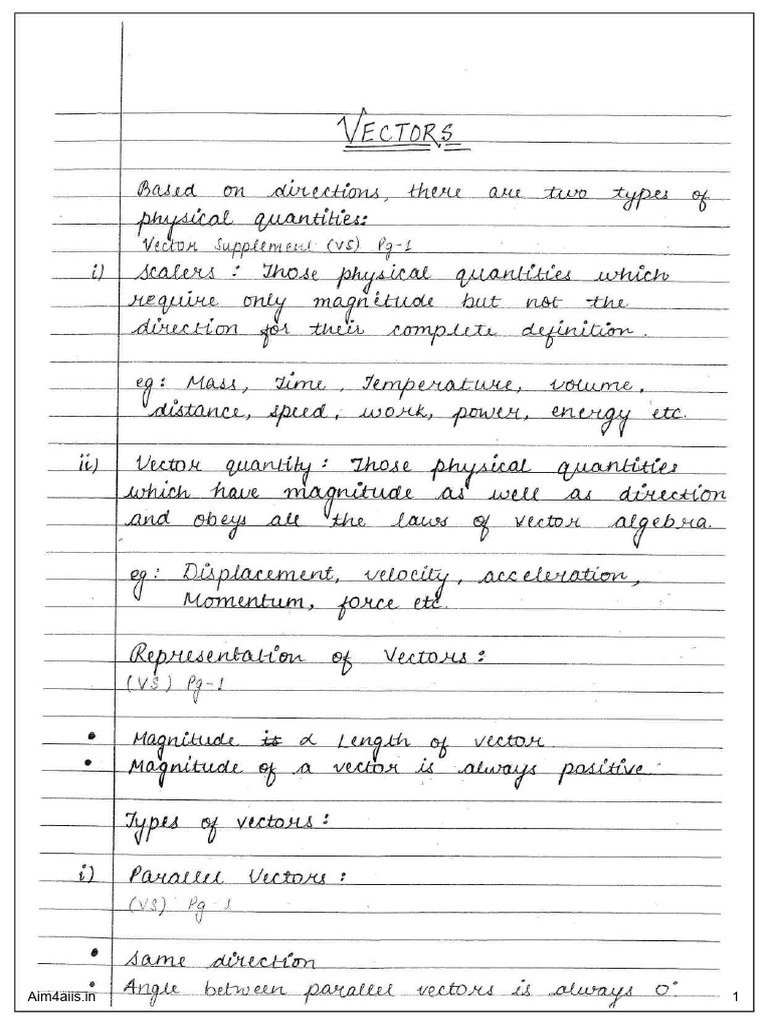 VECTORS
Based on directions, there are two types of
physical quantities:
Vector Supplement (VS) Pg-1
i) Scalers : Those physical quantities which
require only magnitude but not the
direction for their complete definition.
eg: Mass, Time, Temperature, volume,
distance, speed, work, power, energy etc.
ii) Vector quantity: Those physical quantities
which have magnitude as well as direction
and obeys all the laws of vector algebra.
eg: Displacement, velocity, acceleration,
Momentum, force etc.
Representation of Vectors:
(VS) Pg-1
• Magnitude is α Length of vector.
• Magnitude of a vector is always positive.
Types of vectors:
i) Parallel Vectors:
(VS) Pg-1
• Same direction
• Angle between parallel vectors is always 0°
Aim4aiis.in 1